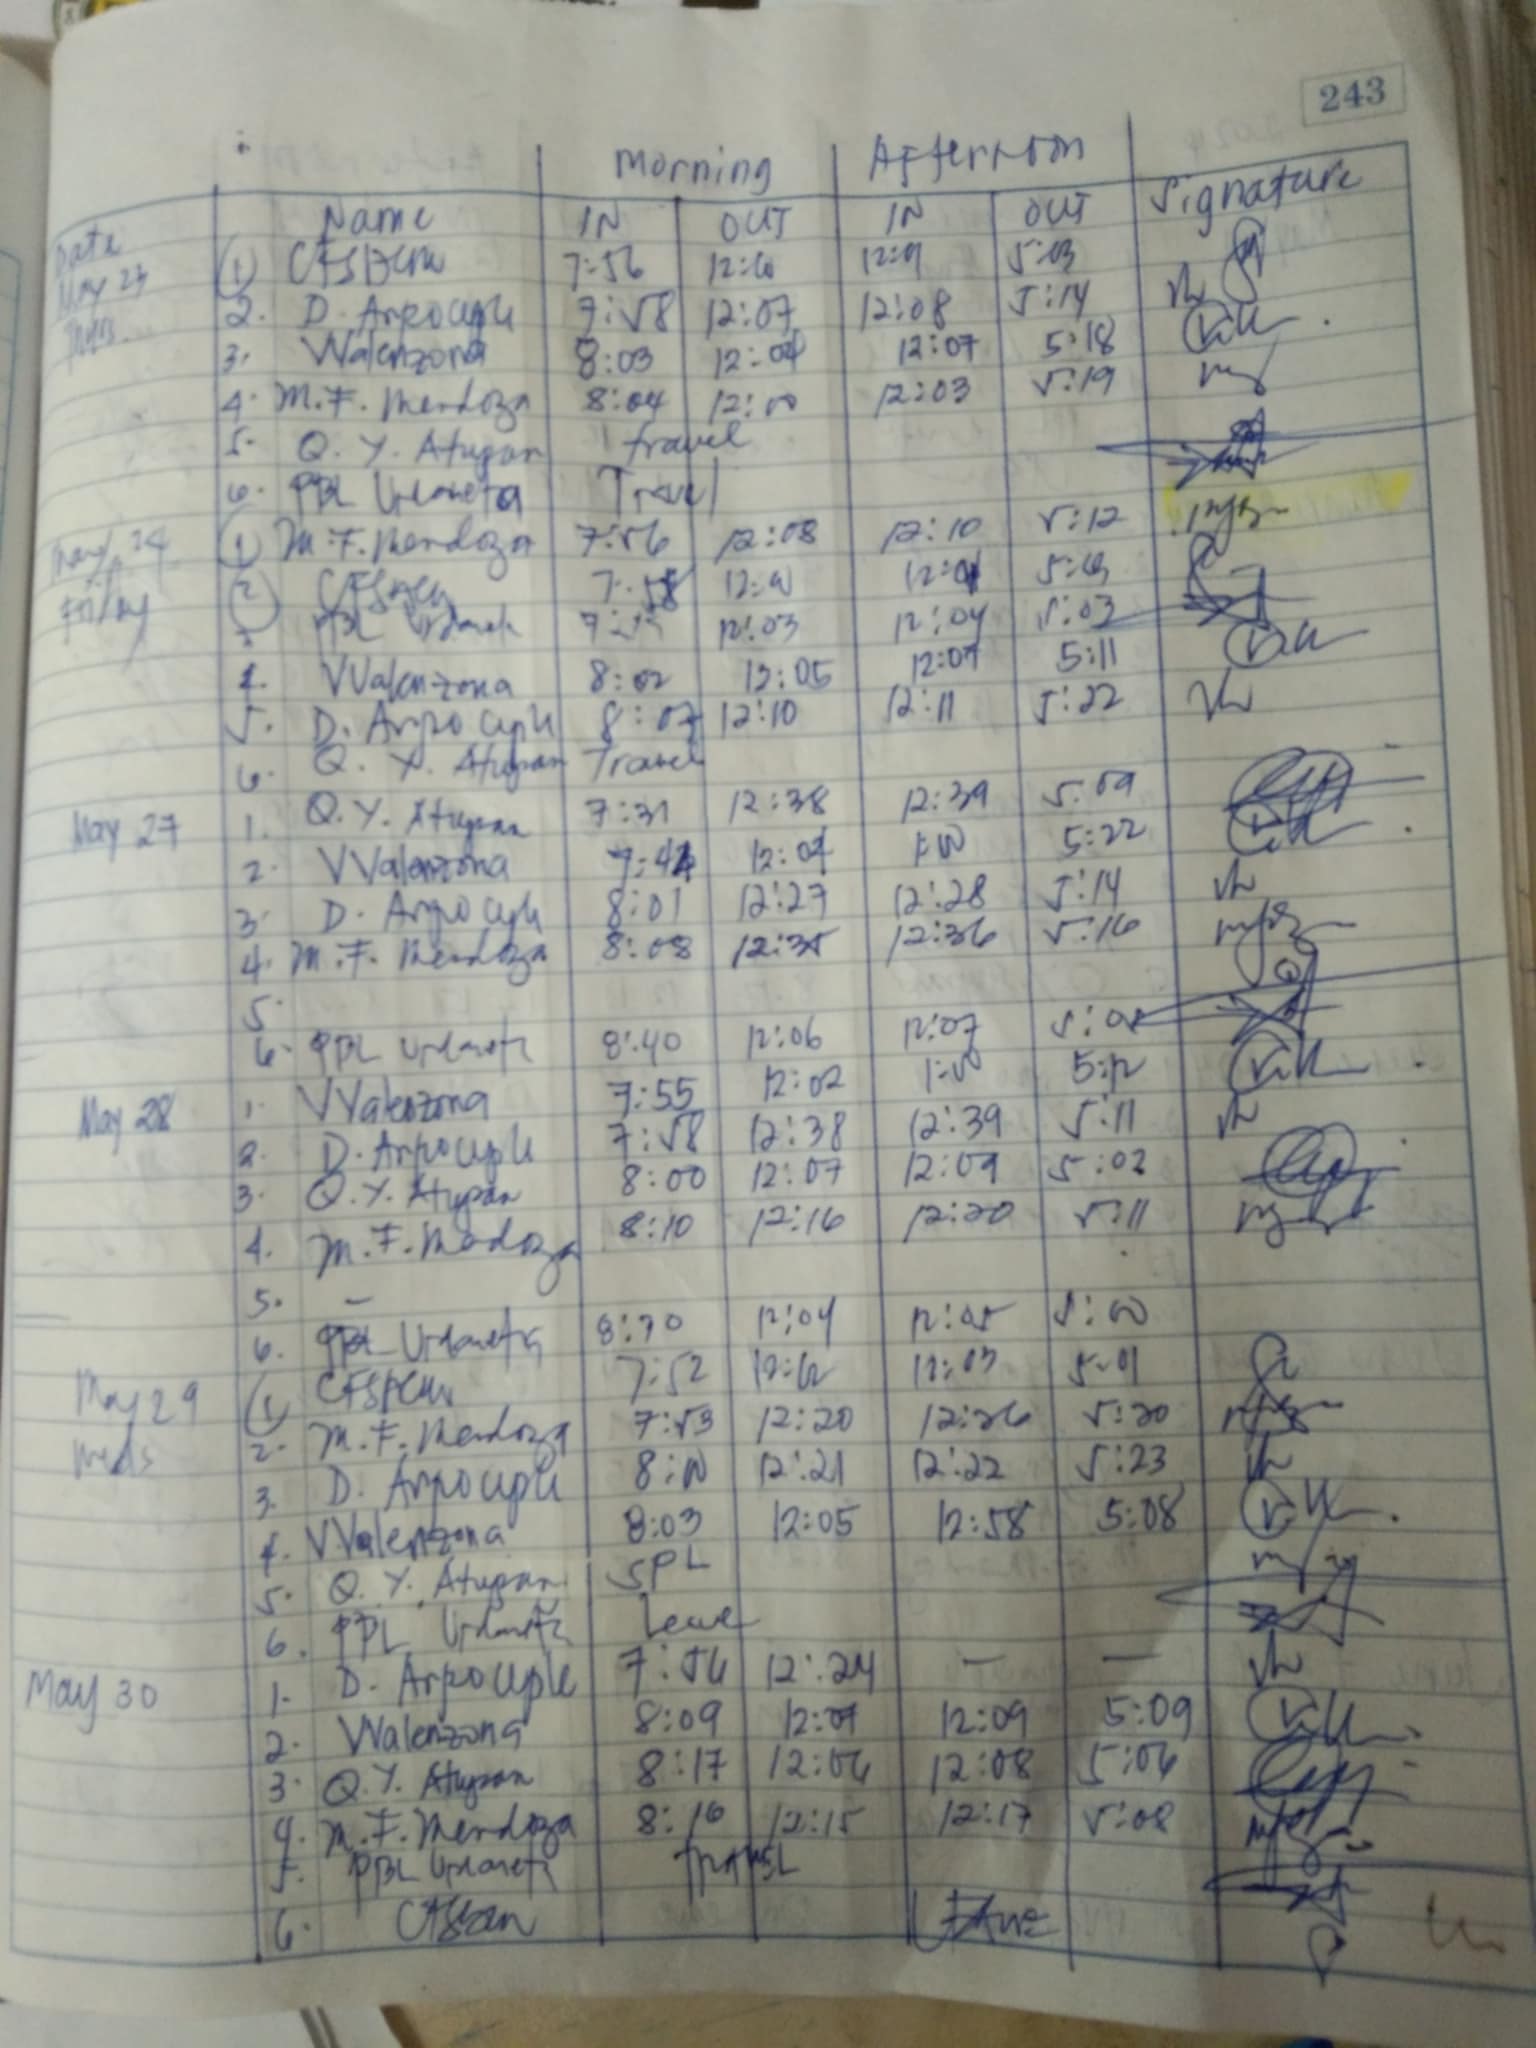 243
Morning Afternoon
Date Name IN OUT IN OUT Signature
May 23 1 7:56 5:03
2. D. Arpocuple 7:58 12:07 12:08 5:14
3. VValenzona 8:03 12:04 12:07 5:18
4. M.F. Mendoza 8:04 12:00 12:03 5:19
5. Q. Y. Atupan travel
6. PBL Urdaneta Travel
May 24 1 M.F. Mendoza 7:56 12:08 12:10 5:12
Friday 2
PBL 12:03 12:04 5:03
4. VValenzona 8:02 12:05 12:07 5:11
5. D. Arpocuple 8:07 12:10 12:11 5:22
6. Q. Y. Atupan Travel
May 27 1. Q.Y. Atupan 7:31 12:38 12:39 5:09
2. VValenzona 12:04 5:22
3. D. Arpocuple 8:01 12:27 12:28 5:14
4. M.F. Mendoza 8:08 12:35 12:36 5:16
5.
6. PBL Urdaneta 8:40 12:06 12:07
May 28 1. VValenzona 7:55 12:02 1:00 5:12
2. D. Arpocuple 7:58 12:38 12:39 5:11
3. Q.Y. Atupan 8:00 12:07 12:09 5:02
4. M.F. Mendoza 8:10 12:16 12:20 5:11
5. –
6. PBL Urdaneta 12:04 12:05 5:00
May 29 1 7:52 12:03 5:01
2. M.F. Mendoza 7:53 12:20 12:26 5:20
3. D. Arpocuple 8:00 12:21 12:22 5:23
4. VValenzona 8:03 12:05 12:58 5:08
5. Q. Y. Atupan SPL
6. PBL Urdaneta Leave
May 30 1. D. Arpocuple 7:56 12:24 – –
2. VValenzona 8:09 12:07 12:09 5:09
3. Q.Y. Atupan 8:17 12:06 12:08 5:06
4. M.F. Mendoza 8:16 12:15 12:17 5:08
5. PBL Urdaneta
6.